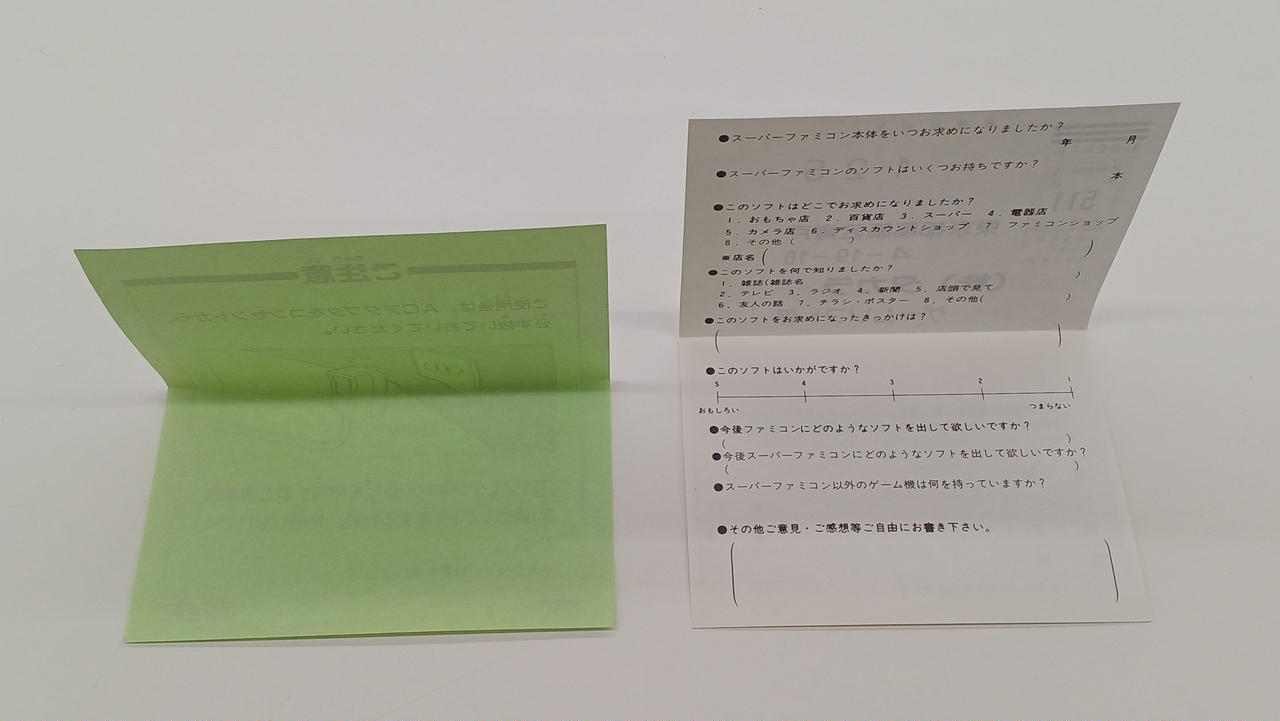 ご注意
ご使用後は、ACアダプタをコンセントから
必ず抜いておいてください。
●スーパーファミコン本体をいつお求めになりましたか？
年 月
●スーパーファミコンのソフトはいくつお持ちですか？
本
●このソフトはどこでお求めになりましたか？
1．おもちゃ店 2．百貨店 3．スーパー 4．電器店
5．カメラ店 6．ディスカウントショップ 7．ファミコンショップ
8．その他（ ）
※店名（ ）
●このソフトを何で知りましたか？
1．雑誌(雑誌名 )
2．テレビ 3．ラジオ 4．新聞 5．店頭で見て
6．友人の話 7．チラシ・ポスター 8．その他( )
●このソフトをお求めになったきっかけは？
( )
●このソフトはいかがですか？
5 4 3 2 1
おもしろい つまらない
●今後ファミコンにどのようなソフトを出して欲しいですか？
( )
●今後スーパーファミコンにどのようなソフトを出して欲しいですか？
( )
●スーパーファミコン以外のゲーム機は何を持っていますか？
●その他ご意見・ご感想等ご自由にお書き下さい。
( )